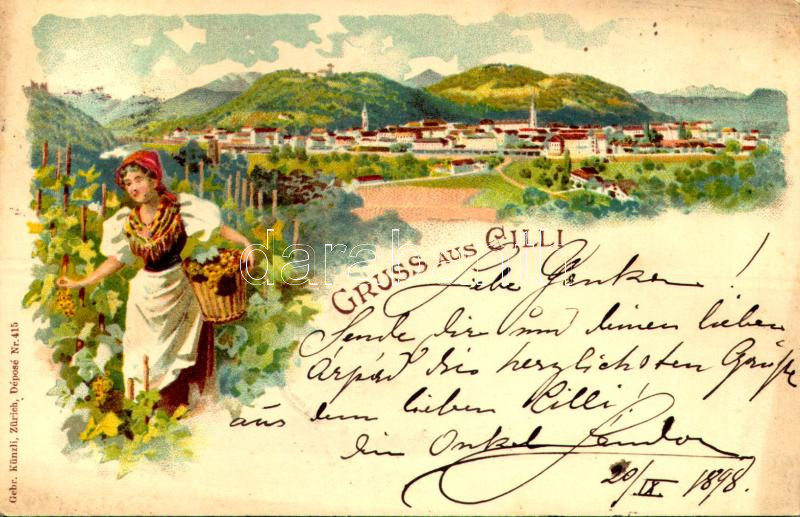 GRUSS AUS CILLI
Liebe !
Sende dir und deinen lieben
Árpád die herzlichsten Grüße
aus dem lieben Cilli!
dein Onkel Sándor
20/IX 1898.
Gebr. Künzli, Zürich, Déposé Nr. 415